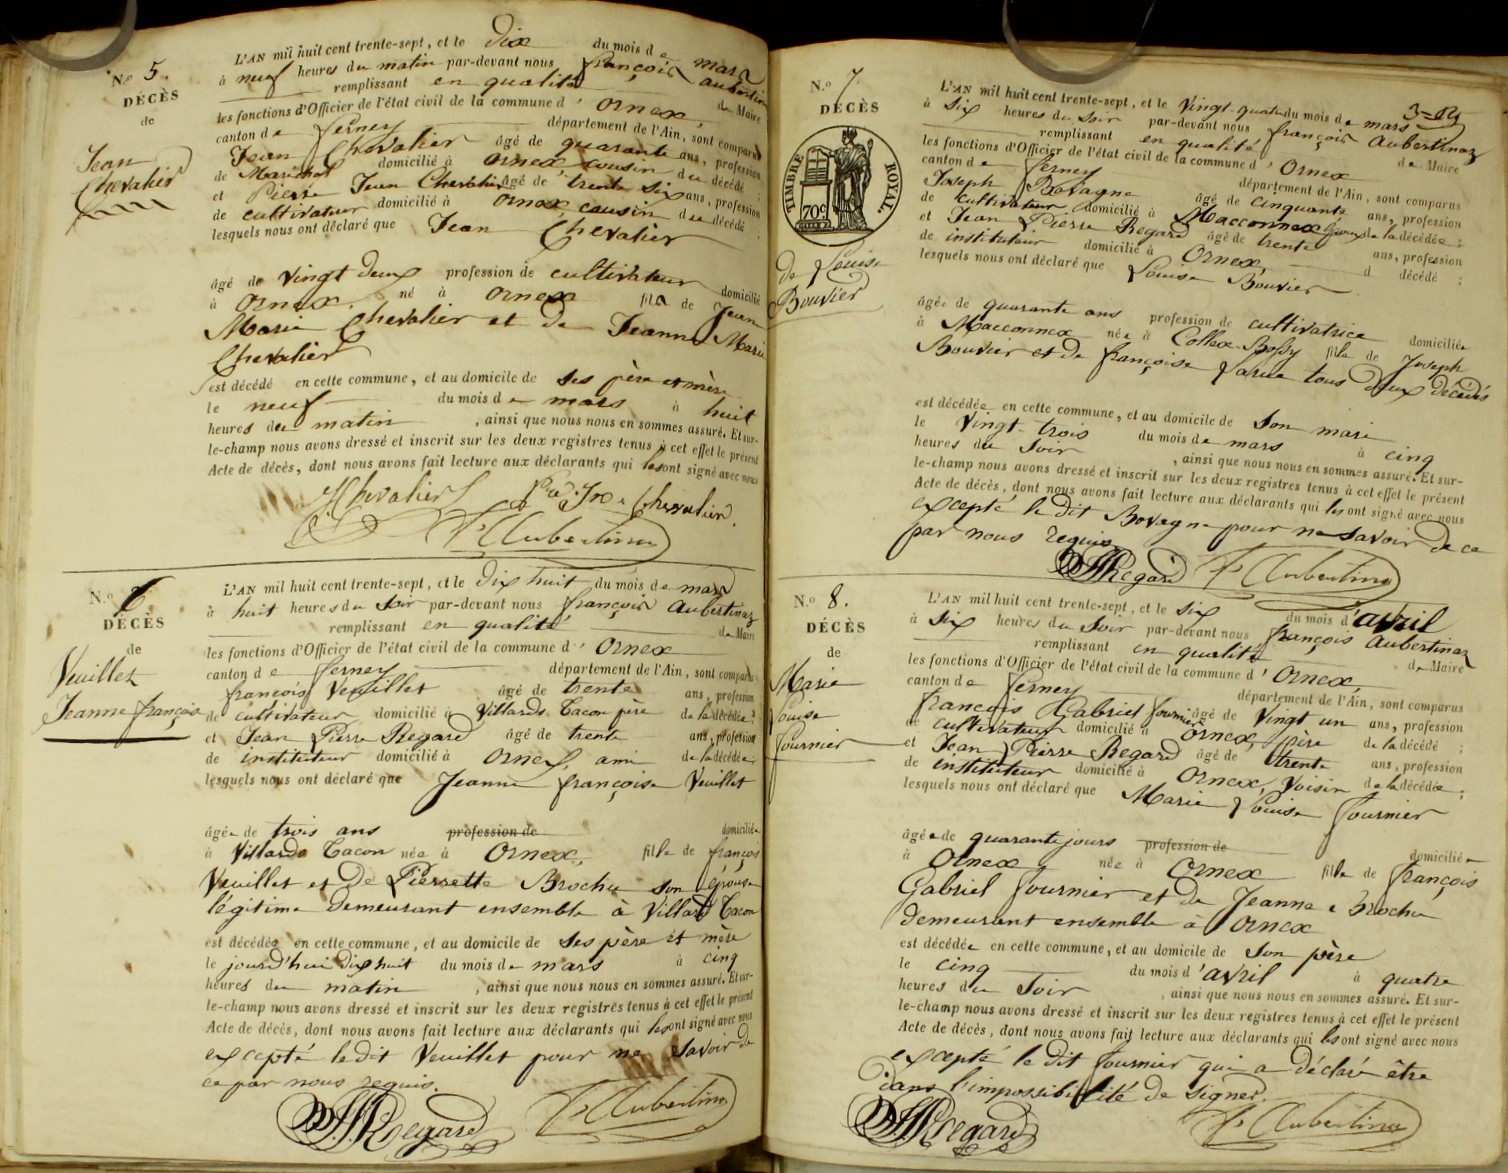 N.o 5.
DÉCÈS
de
Jean
Chevalier
L'AN mil huit cent trente-sept, et le dix du mois de mars
à neuf heures du matin par-devant nous françois aubertin
remplissant en qualité de Maire
les fonctions d'Officier de l'état civil de la commune d'Ornex,
canton de ferney département de l'Ain, sont comparus
Jean Chevalier âgé de quarante ans, profession
de Maréchal domicilié à Ornex cousin du décédé
et Pierre Jean Chevalier âgé de trente six ans, profession
de cultivateur domicilié à Ornex cousin du décédé ;
lesquels nous ont déclaré que Jean Chevalier
âgé de vingt deux profession de cultivateur domicilié
à Ornex. né à Ornex fils de Jean
Marie Chevalier et de Jeanne Marie
Chevalier
est décédé en cette commune, et au domicile de ses père et mère
le neuf du mois de mars à huit
heures du matin, ainsi que nous nous en sommes assuré. Et sur-
le-champ nous avons dressé et inscrit sur les deux registres tenus à cet effet le présent
Acte de décès, dont nous avons fait lecture aux déclarants qui les ont signé avec nous
J Chevalier Chevalier
F. Aubertin
N.o 6
DÉCÈS
de
Veuillet
Jeanne françoise
L'AN mil huit cent trente-sept, et le dix huit du mois de mars
à huit heures du soir par-devant nous françois Aubertinaz
remplissant en qualité de Maire
les fonctions d'Officier de l'état civil de la commune d'Ornex
canton de ferney département de l'Ain, sont comparus
françois Veuillet âgé de trente ans, profession
de cultivateur domicilié à Villards Tacon père de la décédée ;
et Jean Pierre Regard âgé de trente ans, profession
de instituteur domicilié à Ornex, ami de la décédée
lesquels nous ont déclaré que Jeanne françoise Veuillet
âgée de trois ans profession de domiciliée
à Villards Tacon née à Ornex, fille de françois
Veuillet et de Pierrette Brochu son épouse
légitime demeurant ensemble à Villard Tacon
est décédée en cette commune, et au domicile de ses père et mère
le jourd'hui dix huit du mois de mars à cinq
heures du matin, ainsi que nous nous en sommes assuré. Et sur-
le-champ nous avons dressé et inscrit sur les deux registres tenus à cet effet le présent
Acte de décès, dont nous avons fait lecture aux déclarants qui les ont signé avec nous
excepté le dit Veuillet pour ne savoir de
ce par nous requis.
J.P. Regard F. Aubertin
N.o 7.
DÉCÈS
TIMBRE ROYAL.
70c
de Louise
Bouvier
L'AN mil huit cent trente-sept, et le vingt-quatre du mois de mars
à six heures du soir par-devant nous françois Aubertinaz
remplissant en qualité de Maire
les fonctions d'Officier de l'état civil de la commune d'Ornex
canton de ferney département de l'Ain, sont comparus
Joseph Bovagne âgé de cinquante ans, profession
de cultivateur domicilié à Maconnex époux de la décédée ;
et Jean Pierre Regard âgé de trente ans, profession
de instituteur domicilié à Ornex, d décédé ;
lesquels nous ont déclaré que Louise Bouvier
âgée de quarante ans profession de cultivatrice domiciliée
à Macconnex née à Collex-Bossy fille de Joseph
Bouvier et de françoise tous deux décédés
est décédée en cette commune, et au domicile de son mari
le vingt-trois du mois de mars à cinq
heures du soir, ainsi que nous nous en sommes assuré. Et sur-
le-champ nous avons dressé et inscrit sur les deux registres tenus à cet effet le présent
Acte de décès, dont nous avons fait lecture aux déclarants qui les ont signé avec nous
excepté le dit Bovagne pour ne savoir de ce
par nous requis
JPRegard F. Aubertin
N.o 8.
DÉCÈS
de
Marie
Louise
fournier
L'AN mil huit cent trente-sept, et le six du mois d'avril
à six heures du soir par-devant nous françois Aubertinaz
remplissant en qualité de Maire
les fonctions d'Officier de l'état civil de la commune d'Ornex,
canton de ferney département de l'Ain, sont comparus
françois Gabriel fournier âgé de vingt un ans, profession
de cultivateur domicilié à Ornex, père de la décédé ;
et Jean Pierre Regard âgé de trente ans, profession
de instituteur domicilié à Ornex, voisin de la décédée ;
lesquels nous ont déclaré que Marie Louise fournier
âgée de quarante jours profession de domiciliée
à Ornex née à Ornex fille de françois
Gabriel fournier et de Jeanne Brochu
demeurant ensemble à Ornex
est décédée en cette commune, et au domicile de son père
le cinq du mois d'avril à quatre
heures du soir, ainsi que nous nous en sommes assuré. Et sur-
le-champ nous avons dressé et inscrit sur les deux registres tenus à cet effet le présent
Acte de décès, dont nous avons fait lecture aux déclarants qui les ont signé avec nous
excepté le dit fournier qui a déclaré être
dans l'impossibilité de signer.
JPRegard F. Aubertin